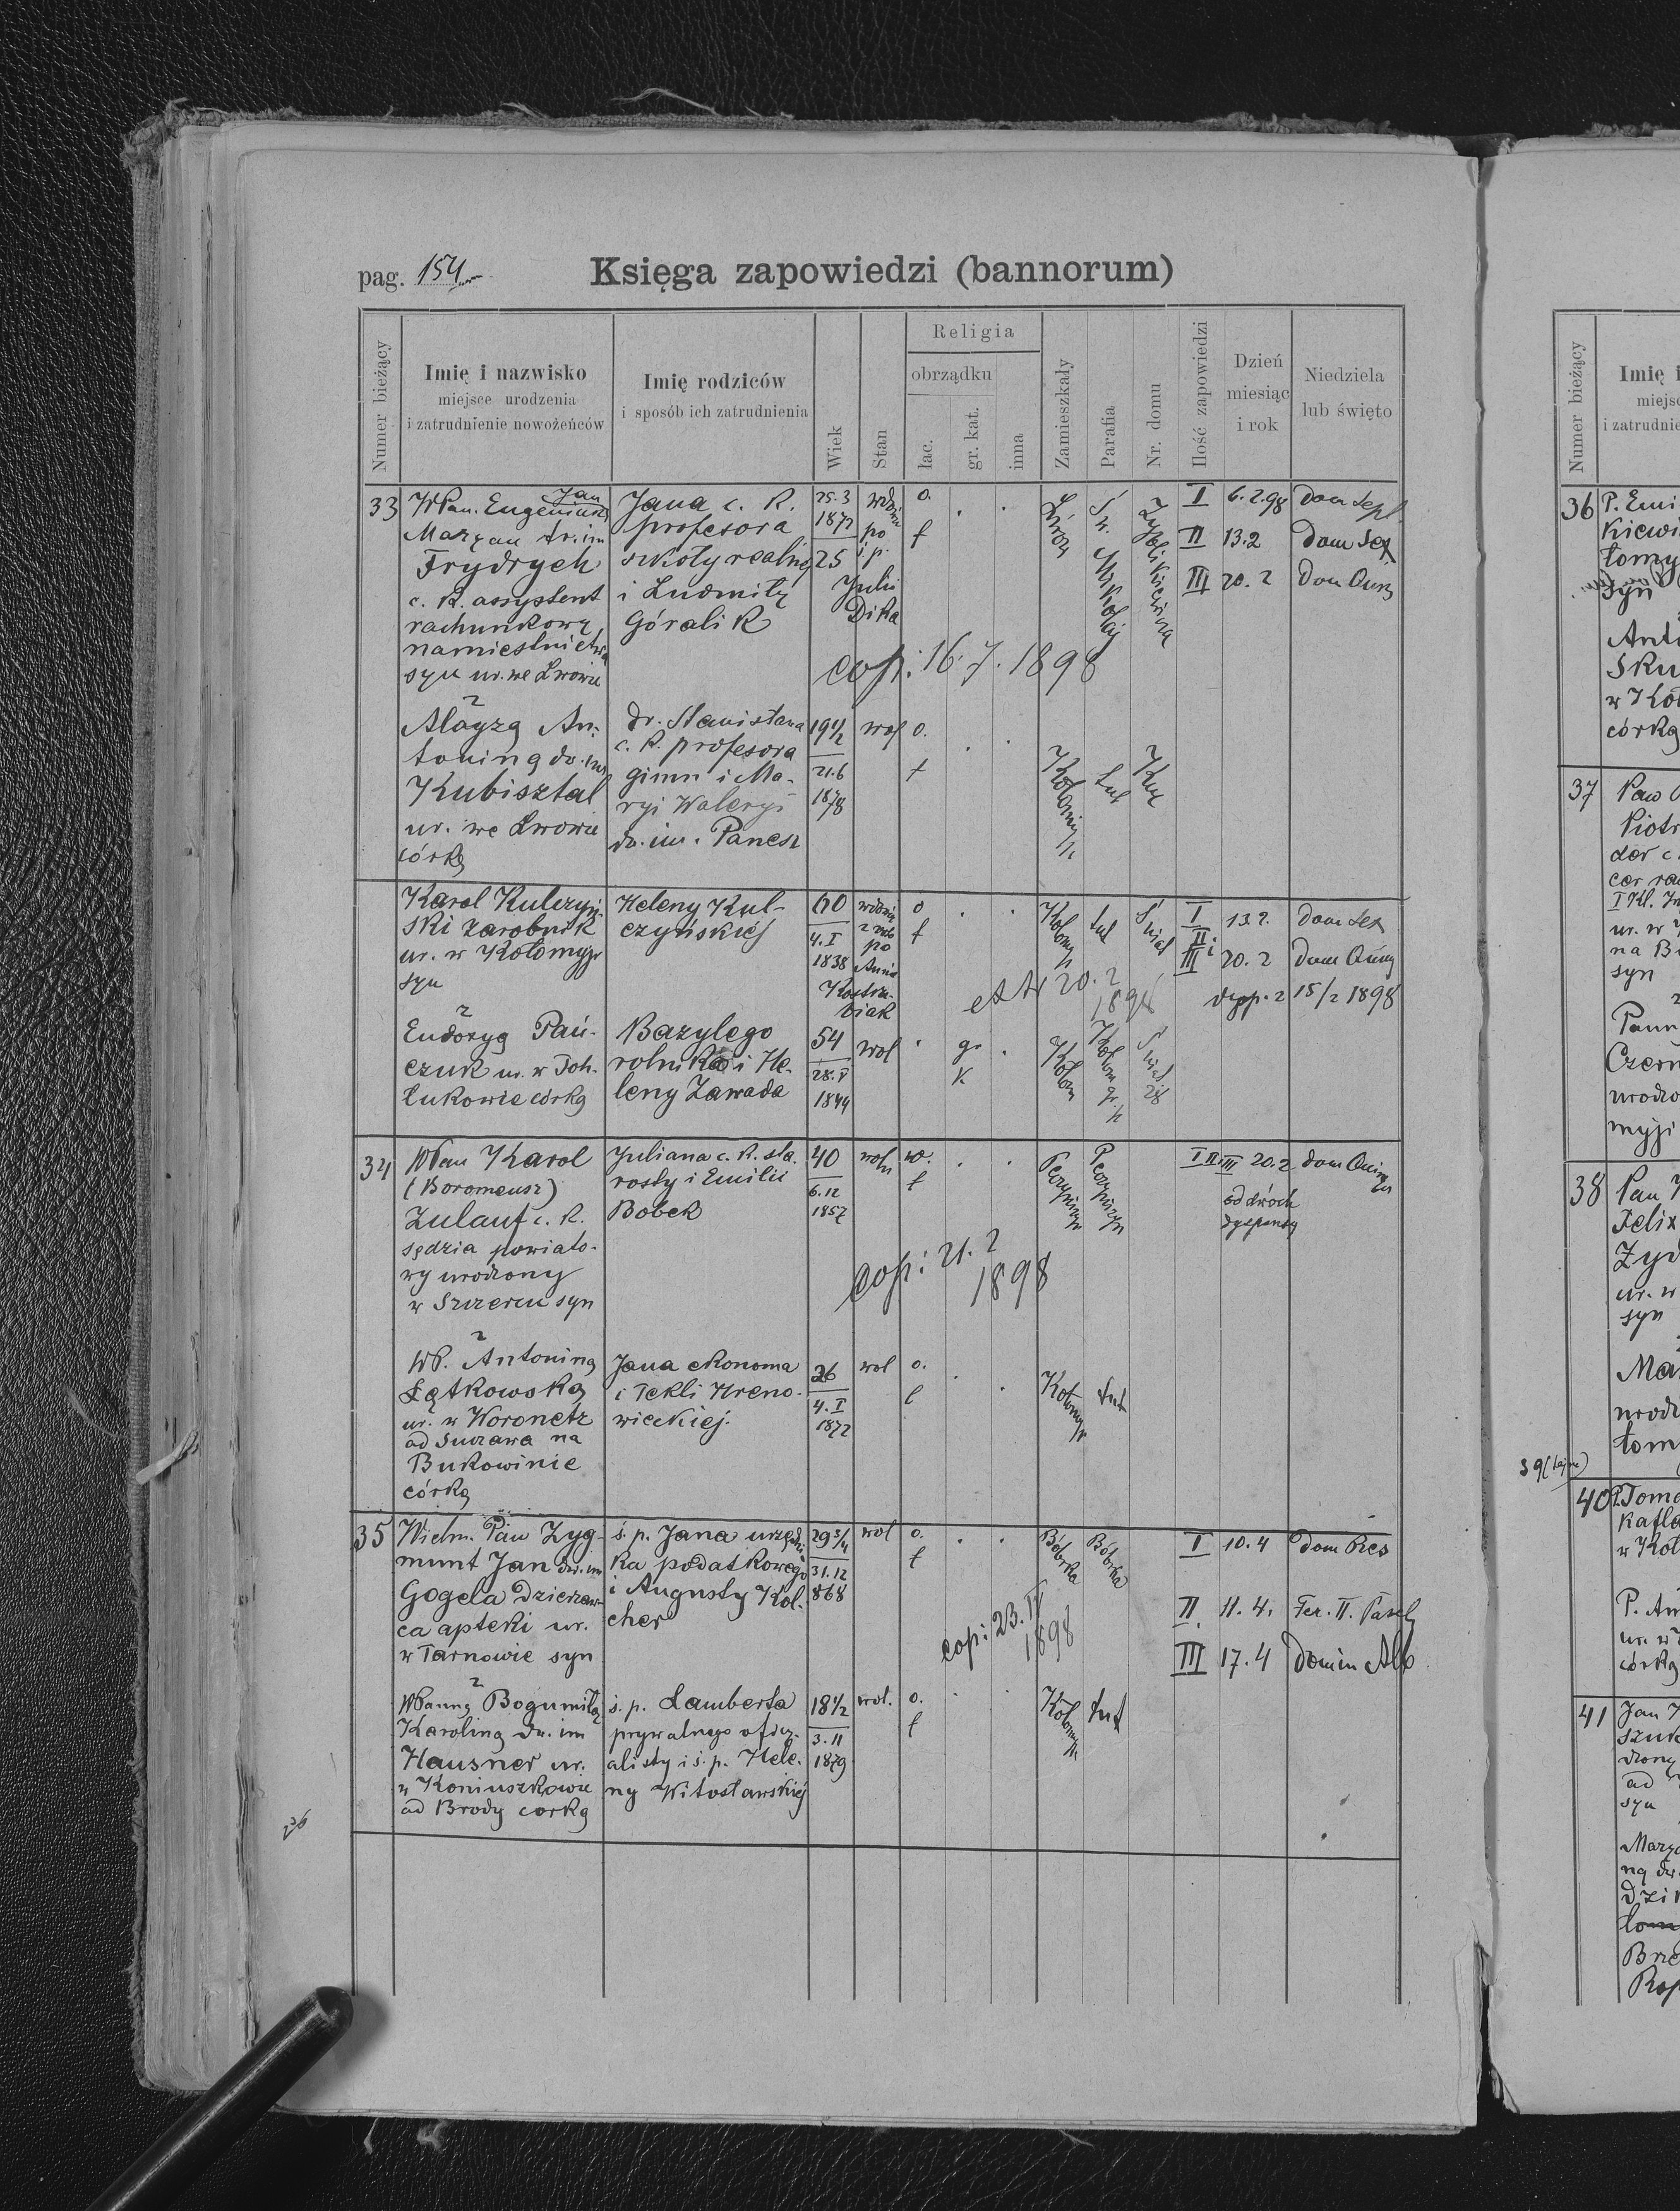 pag. 154
Księga zapowiedzi (bannorum)
Numer bieżący
Imię i nazwisko
miejsce urodzenia
i zatrudnienie nowożeńców
Imię rodziców
i sposób ich zatrudnienia
Wiek
Stan
Religia
obrządku
łac.
gr. kat.
inna
Zamieszkały
Parafia
Nr. domu
Ilość zapowiedzi
Dzień
miesiąc
i rok
Niedziela
lub święto
33
WPan. Eugeniusz
Jan
Maryan
Frydrych
c. k. assystent
rachunkowy
namiestnictwa
syn ur. we Lwowie
Jana c. k.
profesora
szkoły realnej
i Ludmiły
Góralik
25.3
1872
25
wdowiec
po
ś. p.
Julii
Dika
o.
ł
Lwow
Św. Mikołaj
Zyblikiewicza
I 6.2.98 Dom Sept
II 13.2 Dom Sex
III 20.2 Dom Quinq
cop: 16.7.1898
z
Aloyzą An-
toniną
Kubisztal
ur. we Lwowie
córką
dr. Stanisława
c. k. profesora
gimn i Ma-
ryi Waleryi
dw. im. Panesz
19 1/2
21.6
1878
wol
o.
ł
Kołomyja
tut
Karol Kulczyń-
ski zarobnik
ur. w Kołomyji
syn
Heleny Kul-
czyńskiej
60
4. I
1838
wdowiec
po
Annie
o
ł
Kołomyja
tut
I 13.2. Dom Sex
II i
III 20.2 Dom Quinq
dysp. z 15/2 1898
20.2
1898
z
Eudozyą Pań-
czuk ur. w Toh-
łukowie córką
Bazylego
rolnika i He-
leny Zawada
54
28. V
1844
wol
gr.
k.
Kołom
Kołom gr.
28
34
WPan Karol
(Boromeusz)
Zulauf c. k.
sędzia powiato-
wy urodzony
w Szczercu syn
Juliana c. k. sta-
rosty i Emilii
Bobek
40
6.12
1857
wolny
ł
Peczeniżyn
Peczeniżyn
I II III 20.2 Dom Quinq
od dwóch
dyspensy
cop: 21.2
1898
z
WP. Antoniną
Łątkowską
ur. w Woronetz
ad Suczawa na
Bukowinie
córką
Jana ekonoma
i Tekli Hreno-
wieckiej.
26
4. I
1872
wol
o.
ł
Kołomyja
tut
35
Wielm. Pan Zyg-
munt Jan dw. im
Gogela Dzierżaw-
ca apteki ur.
w Tarnowie syn
ś. p. Jana urzędni
ka podatkowego
i Augusty Kol-
cher
29 3/4
31.12
868
wol
o.
ł
Bóbrka
Bóbrka
I 10.4 Dom Res
II 11.4. Fer. II. Pasch
III 17.4 Domin Alb
cop: 23. IV
1898
z
WPanną Bogumiłą
Karoliną dw. im
Hausner ur.
w Koniuszkowie
ad Brody corką
ś. p. Lamberta
prywatnego oficy-
alisty i ś. p. Hele-
ny Witosławskiej
18 1/2
3.11
1879
wol.
o.
ł
Kołomyja
tut
Numer bieżący
36
P. Emi
kiewi
łomy
syn
Anto
Sku
w Koł
córką
37
Piotr
ur. w
na B
syn
Pann
Czern
urodzo
myji
38
Pan
Felix
Zyd
ur. w
syn
Ma
urodz
łom
39
40
P. Toma
kafla
w Koł
P. An
ur. w
córką
41
Jan
szuk
dzony
ad
syn
Mary
ną dw.
dzi
Brze